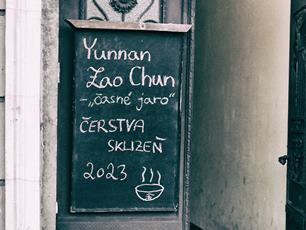 Yunnan
Zao Chun
- „časné jaro“
ČERSTVA
SKLIZEŇ
2023